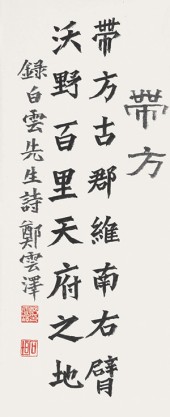 帶方
帶方古郡維南右臂
沃野百里天府之地
錄白雲先生詩鄭雲澤